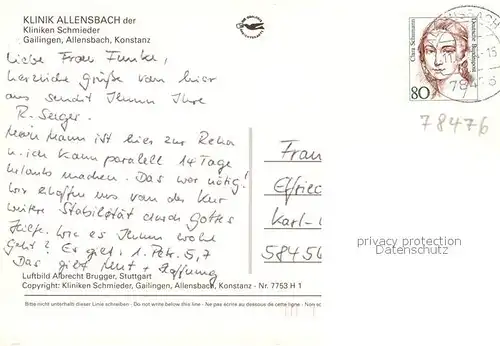 KLINIK ALLENSBACH der
Kliniken Schmieder
Gailingen, Allensbach, Konstanz
Liebe Frau Funke,
herzliche Grüße von hier
aus sendet Ihnen Ihre
R. Seeger.
Mein Mann ist hier zur Reha
u. ich kann parallell 14 Tage
Urlaub machen. Das war nötig!
Wir erhoffen uns von der Kur
weitere Stabilität durch Gottes
Hilfe. Wie es Ihnen wohl
geht? Es gilt: 1. Petr. 5,7
Das gibt Mut + Hoffnung
Luftbild Albrecht Brugger, Stuttgart
Copyright: Kliniken Schmieder, Gailingen, Allensbach, Konstanz - Nr. 7753 H 1
Bitte nicht unterhalb dieser Linie schreiben - Do not write below this line - Ne pas écrire au dessous de cette ligne - Non sc
Clara Schumann
Deutsche Bundespost
80
78476
Frau
Elfried
Karl-
58456
privacy protection
Datenschutz